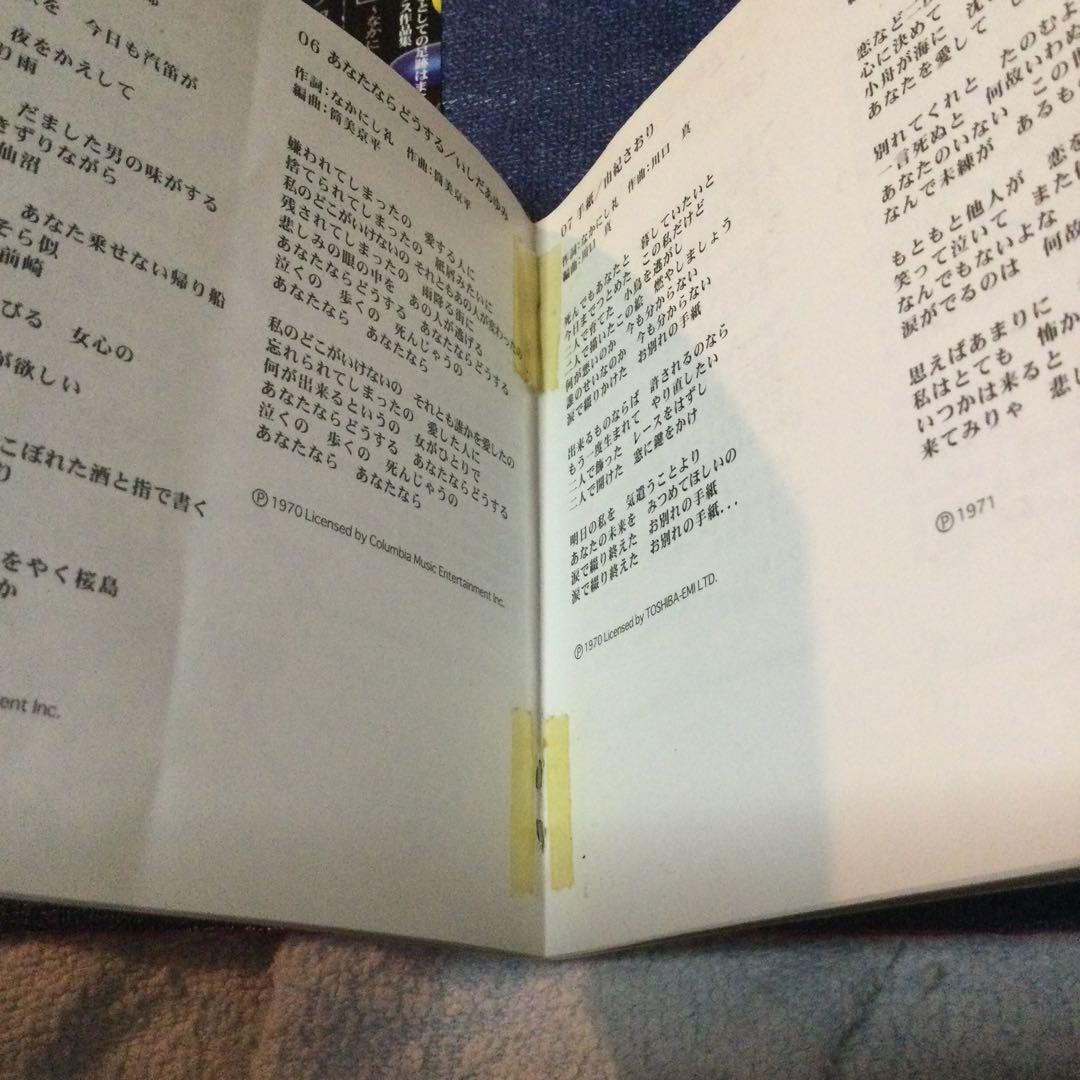 を 今日も汽笛が
夜をかえして
り雨
だました男の味がする
きずりながら
仙沼
あなた乗せない帰り船
そら似
前崎
びる 女心の
が欲しい
こぼれた酒と指で書く
り
をやく桜島
か
ent Inc.
06 あなたならどうする/いしだあゆみ
作詞:なかにし礼 作曲:筒美京平
編曲:筒美京平
嫌われてしまったの 愛する人に
捨てられてしまったの 紙屑みたいに
私のどこがいけないの それともあの人が変わったの
残されてしまったの 雨降る街に
悲しみの眼の中を あの人が逃げる
あなたならどうする あなたならどうする
泣くの 歩くの 死んじゃうの
あなたなら あなたなら
私のどこがいけないの それとも誰かを愛したの
忘れられてしまったの 愛した人に
何が出来るというの 女がひとりで
あなたならどうする あなたならどうする
泣くの 歩くの 死んじゃうの
あなたなら あなたなら
Ⓟ1970 Licensed by Columbia Music Entertainment Inc.
としての足跡はま
ス作品集
なかに
07 手紙/由紀さおり
作詞:なかにし礼 作曲:川口 真
編曲:川口 真
死んでもあなたと 暮していたいと
今日までつとめた この私だけど
二人で育てた 小鳥を逃がし
二人で描いたこの絵 燃やしましょう
何が悪いのか 今も分からない
誰のせいなのか 今も分からない
涙で綴りかけた お別れの手紙
出来るものならば 許されるのなら
もう一度生まれて やり直したい
二人で飾った レースをはずし
二人で開けた 窓に鍵をかけ
明日の私を 気遣うことより
あなたの未来を みつめてほしいの
涙で綴り終えた お別れの手紙
涙で綴り終えた お別れの手紙...
Ⓟ1970 Licensed by TOSHIBA-EMI LTD.
恋など二
心に決めて 沈
小舟が海に
あなたを愛して
別れてくれと たのむよ
一言死ぬと 何故いわぬ
あなたのいない この
なんで未練が あるも
もともと他人が 恋を
笑って泣いて また
なんでもないよな
涙がでるのは 何故
思えばあまりに
私はとても 怖か
いつかは来ると
来てみりゃ 悲し
Ⓟ1971